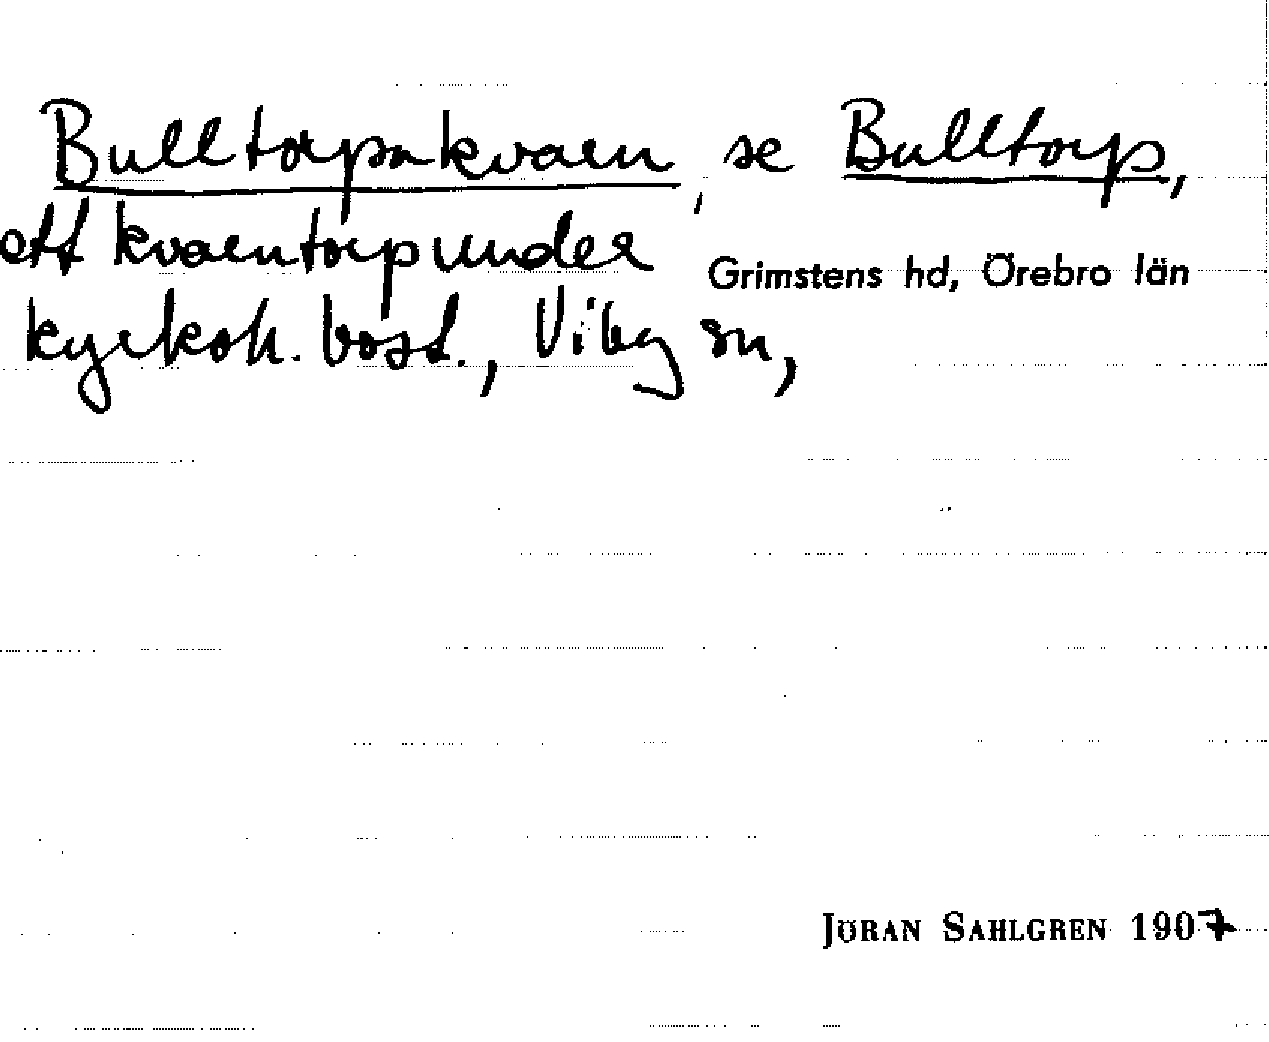 Bulltorpakvarn, se Bulltorp,
ett kvarntorp under
Grimstens hd, Örebro län
kyrkoh. bost., Viby sn,
JÖRAN SAHLGREN 1907